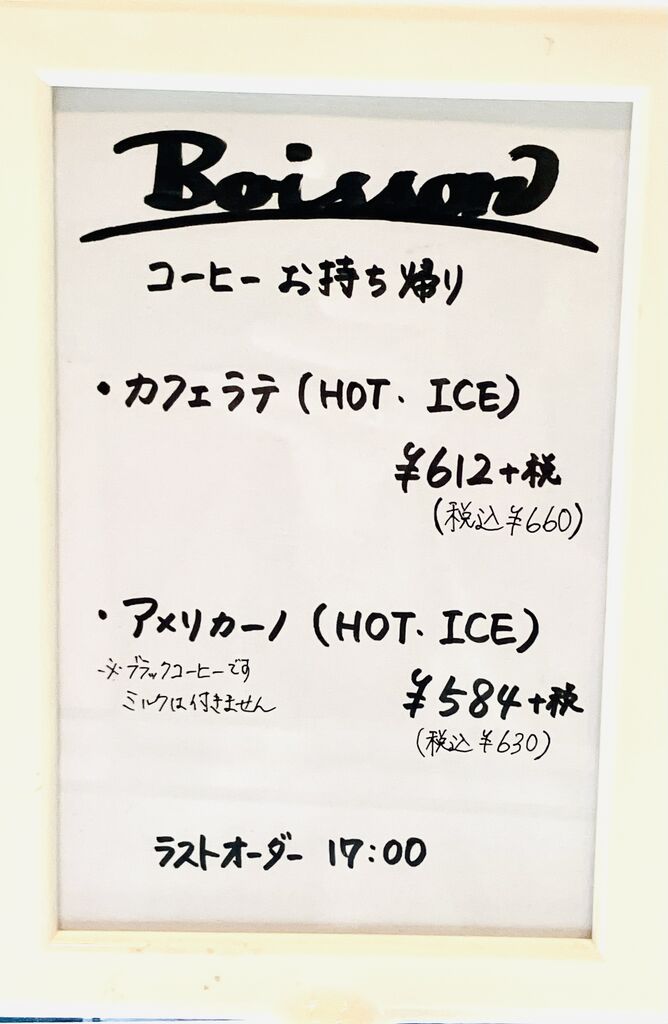 Boisson
コーヒー お持ち帰り
・カフェラテ (HOT. ICE)
¥612+税
(税込¥660)
・アメリカーノ (HOT. ICE)
※ブラックコーヒーです
ミルクは付きません
¥584+税
(税込¥630)
ラストオーダー 17:00